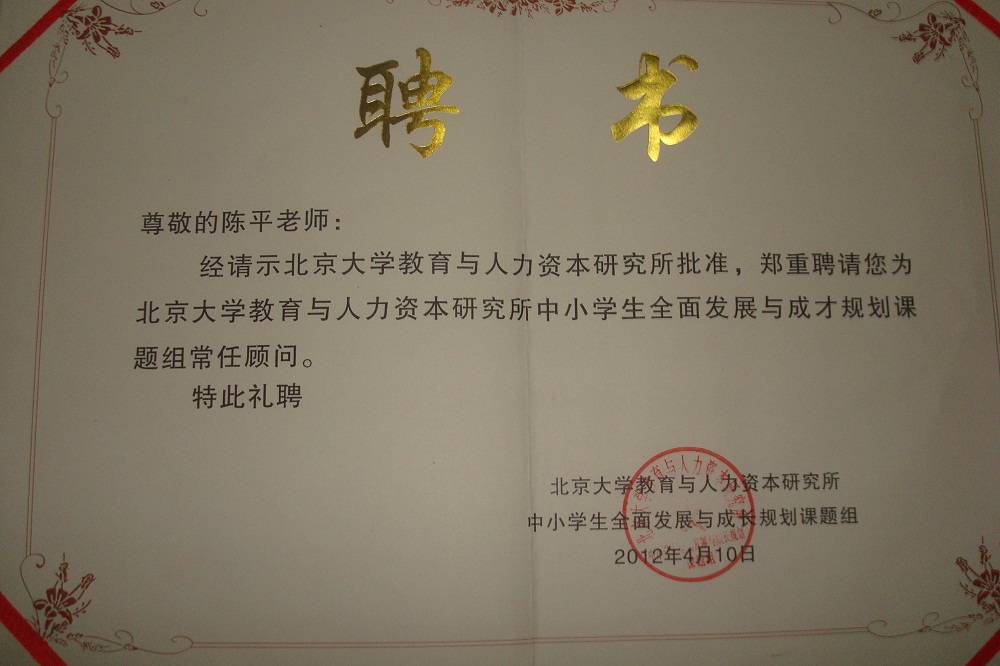 聘书
尊敬的陈平老师：
经请示北京大学教育与人力资本研究所批准，郑重聘请您为
北京大学教育与人力资本研究所中小学生全面发展与成才规划课
题组常任顾问。
特此礼聘
北京大学教育与人力资本研究所
中小学生全面发展与成长规划课题组
2012年4月10日